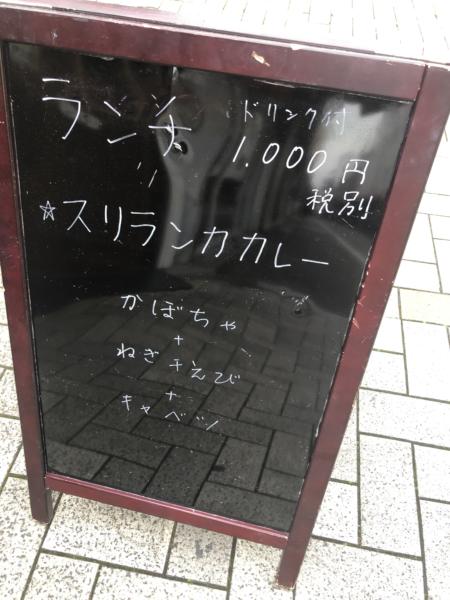 ランチ ドリンク付
1.000円
税別
☆スリランカカレー
かぼちゃ
+
ねぎ+えび
+
キャベツ